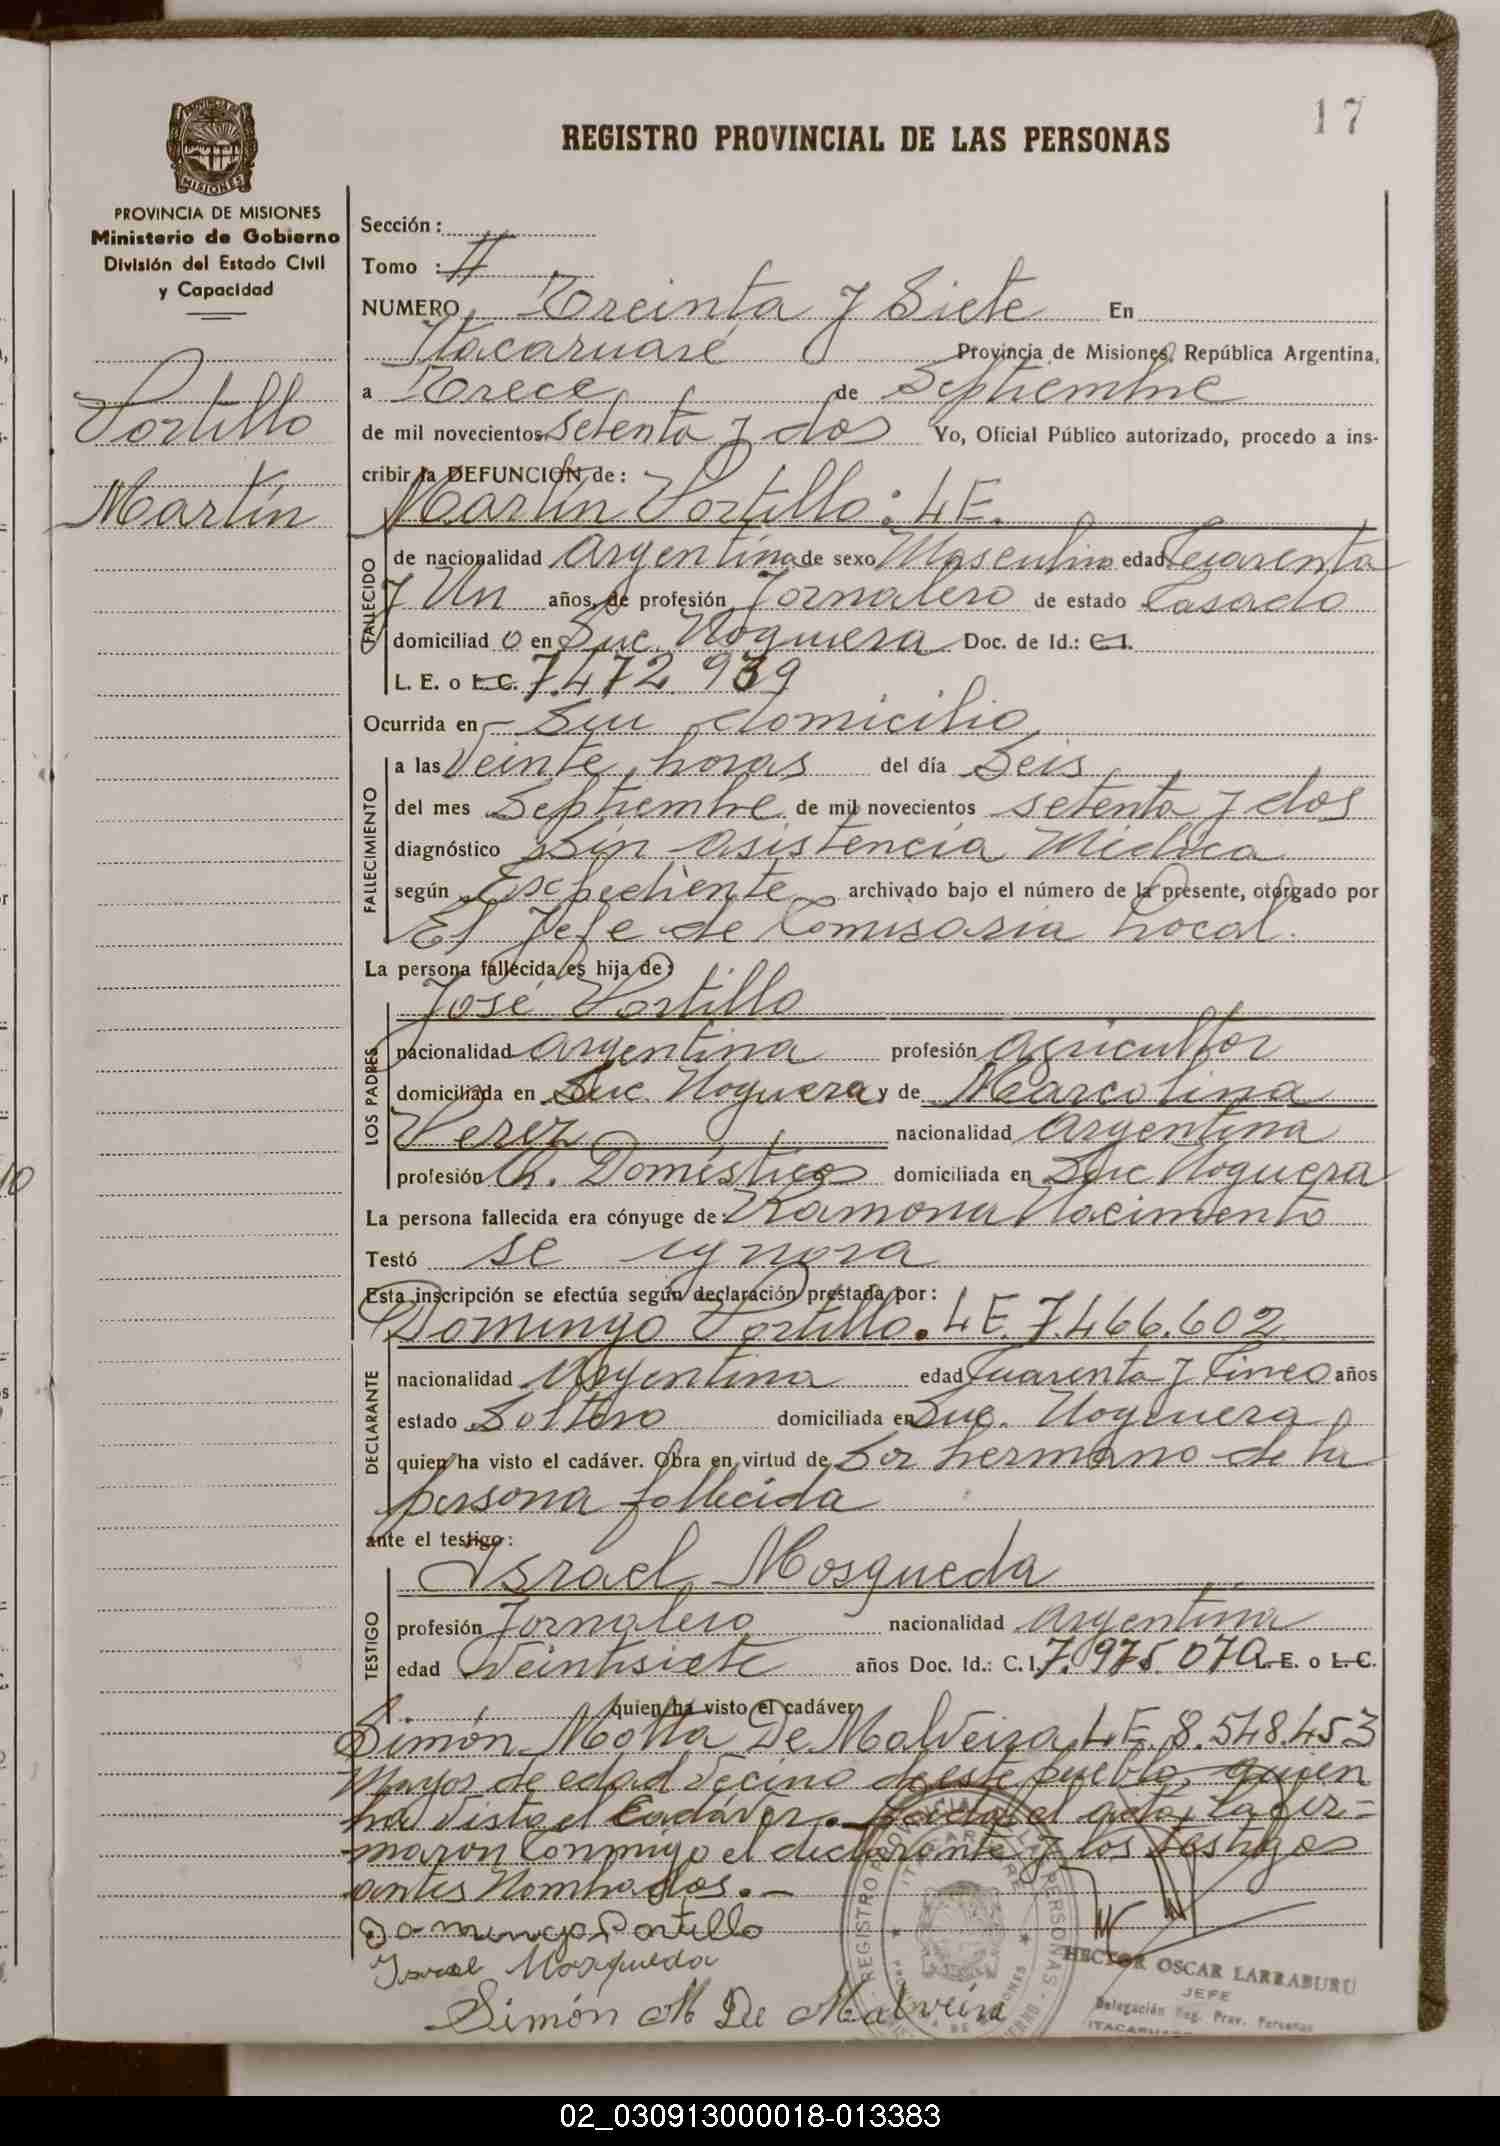 17
REGISTRO PROVINCIAL DE LAS PERSONAS
PROVINCIA DE MISIONES
Ministerio de Gobierno
División del Estado Civil
y Capacidad
Portillo
Martín
Sección:
Tomo : II
NUMERO Treinta y Siete En
Itacaruaré Provincia de Misiones, República Argentina,
a Trece de Septiembre
de mil novecientos setenta y dos Yo, Oficial Público autorizado, procedo a ins-
cribir la DEFUNCION de:
Martín Portillo: L E.
FALLECIDO
de nacionalidad Argentina de sexo Masculino edad Cuarenta
y Un años, de profesión Jornalero de estado Casado
domiciliad o en Suc. Noguera Doc. de Id.: C.I.
L. E. o L.C. 7.472.939
Ocurrida en - Su domicilio
FALLECIMIENTO
a las Veinte horas del día Seis
del mes Septiembre de mil novecientos setenta y dos
diagnóstico Sin Asistencia Médica
según Escpediente archivado bajo el número de la presente, otorgado por
El Jefe de Comisaria Local.
La persona fallecida es hija de:
José Portillo
LOS PADRES
nacionalidad Argentina profesión agricultor
domiciliada en Suc. Noguera y de Marcolina
Perez nacionalidad Argentina
profesión Q. Domésticos domiciliada en Suc Noguera
La persona fallecida era cónyuge de: Ramona Nacimento
Testó se ignora
Esta inscripción se efectúa según declaración prestada por:
Domingo Portillo. L E. 7.466.602
DECLARANTE
nacionalidad Argentina edad Cuarenta y Cinco años
estado Soltero domiciliada en Suc. Noguera
quien ha visto el cadáver. Obra en virtud de Ser hermano de la
persona fallecida
ante el testigo:
Israel Mosqueda
TESTIGO
profesión Jornalero nacionalidad Argentina
edad Veintisiete años Doc. Id.: C. I. 7.975.070 L. E. o L.C.
quien ha visto el cadáver
Simón Motta De Malveira L E. 8.548.453
Mayor de edad Vecino de este pueblo, quien
ha Visto el Cadáver. el acta, la fir=
maron Conmigo el declarante y los testigos
antes Nombrados.-
Domingo Portillo
Israel Mosqueda
Simón M De Malveira
HECTOR OSCAR LARRABURU
JEFE
Delegación Reg. Prov. Personas
02_030913000018-013383